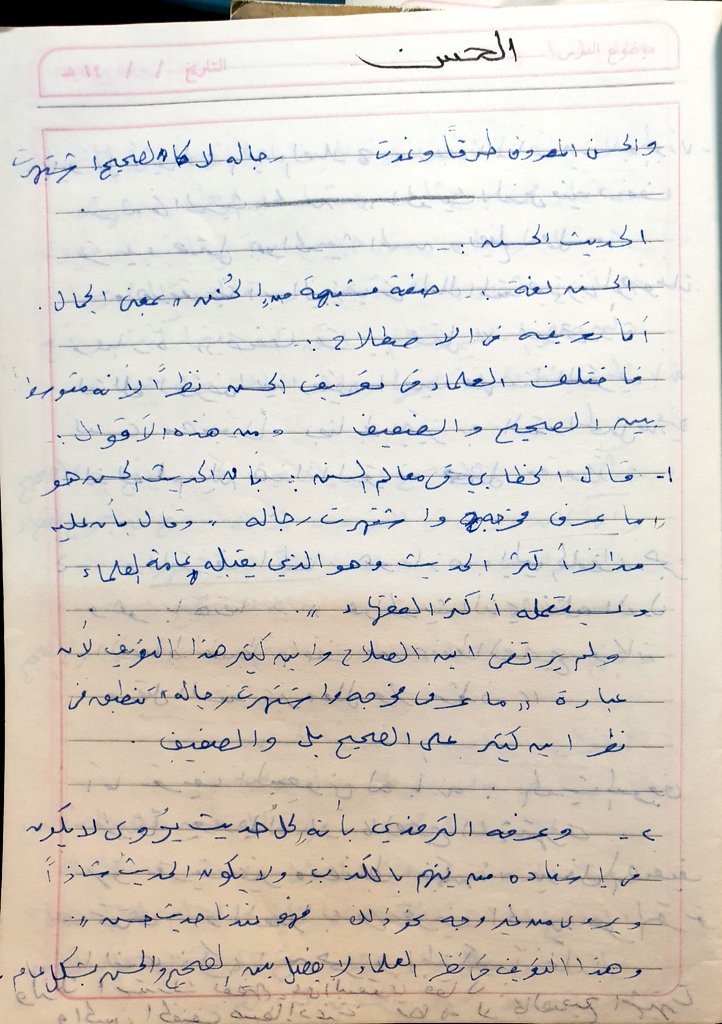 موضوع الدرس / التاريخ / / ١٤ هـ
الحسن
والحسن المعروف طرقاً وغدت رجاله لا كالصحيح اشتهرت
الحديث الحسن :-
الحسن لغة :- صفة مشبهة من "الحُسن" بمعنى الجمال .
أما تعريفه في الاصطلاح :
فاختلف العلماء في تعريف الحسن نظراً لأنه متوسط
بين الصحيح والضعيف ومن هذه الأقوال :
١- قال الخطابي في معالم السنن : بأن الحديث الحسن هو
"ما عرف مخرجه واشتهرت رجاله" وقال بأن عليه
مدار أكثر الحديث وهو الذي يقبله عامة العلماء
ويستعمله أكثر الفقهاء" .
ولم يرتض ابن الصلاح وابن كثير هذا التعريف لأن
عبارة "ما عرف مخرجه واشتهرت رجاله" تنطبق في
نظر ابن كثير على الصحيح بل والضعيف .
٢- وعرفه الترمذي بأنه "كل حديث يروى لا يكون
في إسناده من يتهم بالكذب ولا يكون الحديث شاذاً
ويروى من غير وجه نحو ذلك فهو عندنا حديث حسن" .
وهذا التعريف في نظر العلماء لا يفصل بين الصحيح والحسن بشكل عام .